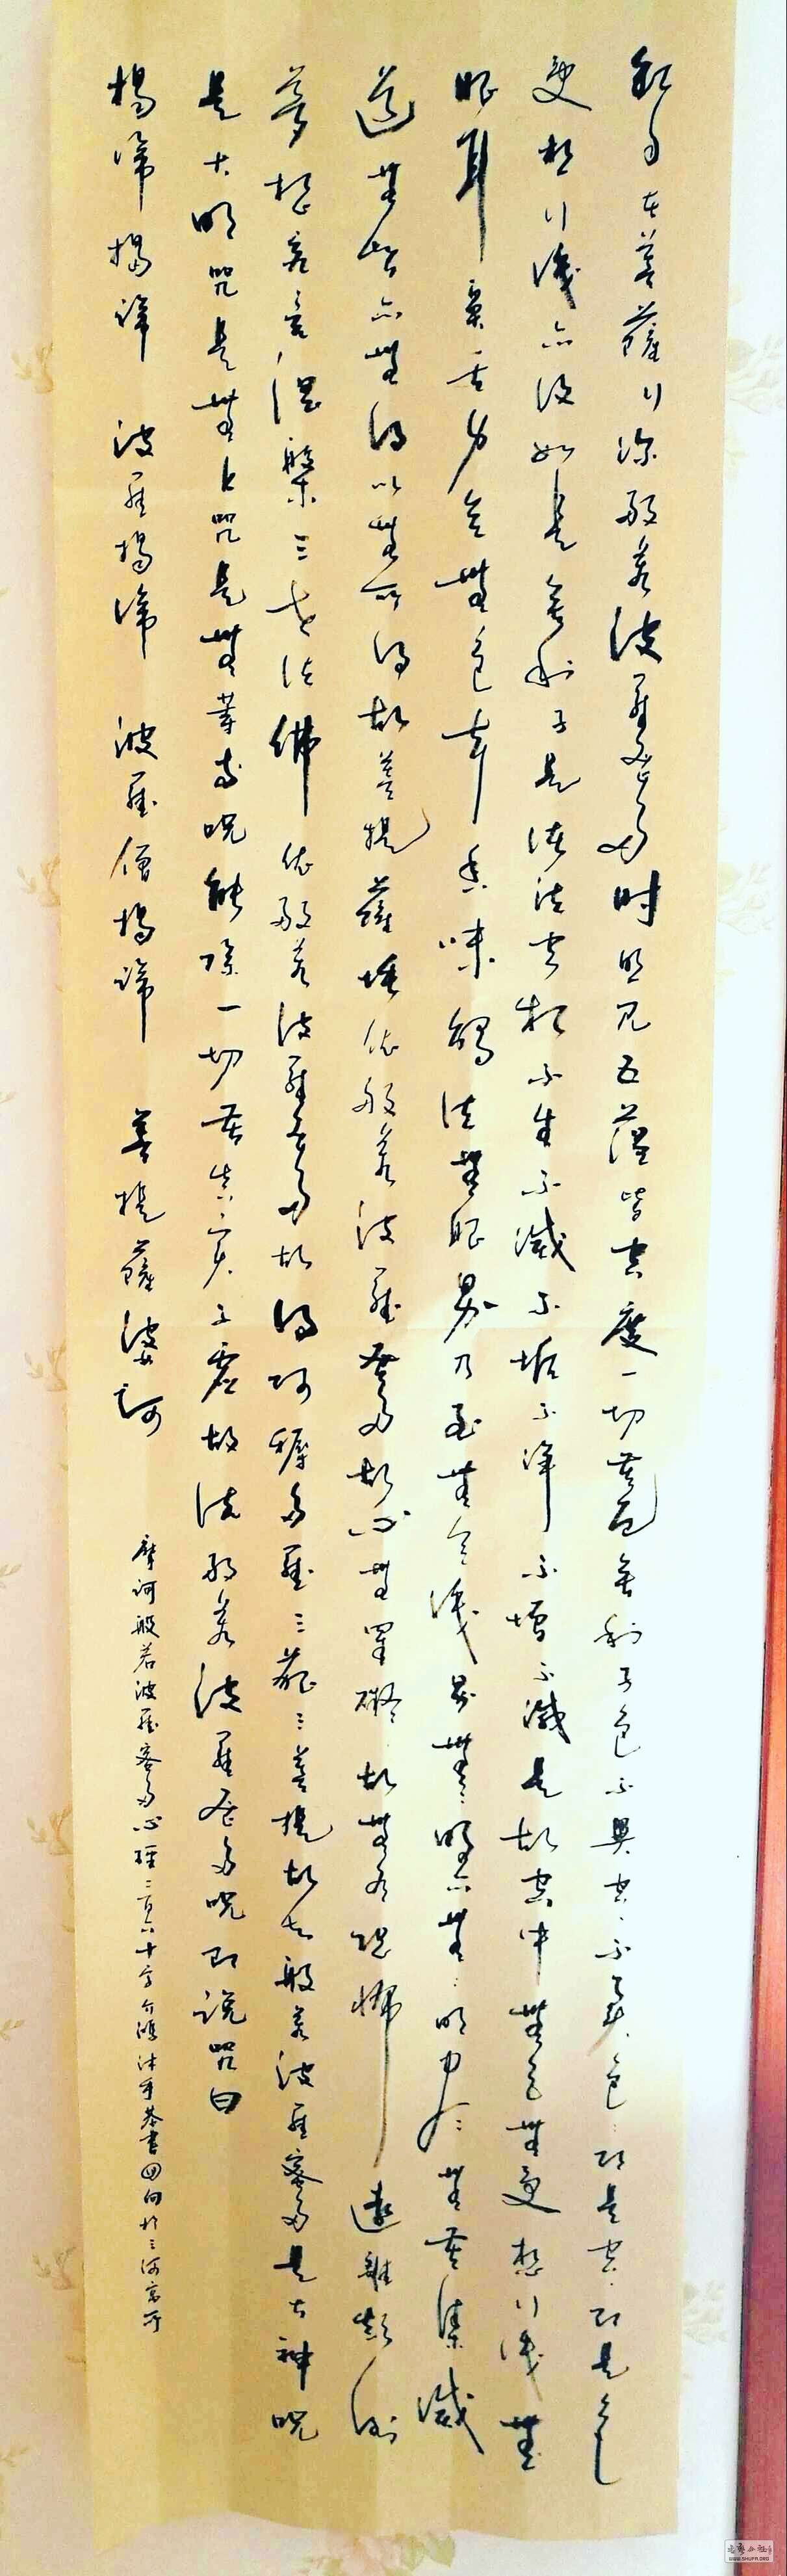 観自在菩薩行深般若波羅蜜多時照見五蘊皆空度一切苦厄舍利子色不異空空不異色色即是空空即是色
受想行識亦復如是舍利子是諸法空相不生不滅不垢不淨不增不減是故空中無色無受想行識無
眼耳鼻舌身意無色聲香味觸法無眼界乃至無意識界無無明亦無無明盡乃至無苦集滅
道無智亦無得以無所得故菩提薩埵依般若波羅蜜多故心無罣礙無罣礙故無有恐怖遠離顛倒
夢想究竟涅槃三世諸佛依般若波羅蜜多故得阿耨多羅三藐三菩提故知般若波羅蜜多是大神咒
是大明咒是無上咒是無等等咒能除一切苦真實不虛故說般若波羅蜜多咒即說咒曰
揭諦揭諦 波羅揭諦 波羅僧揭諦 菩提薩婆訶
摩訶般若波羅蜜多心經二百六十字 沐手恭書回向於三河
WWW.SHUFA.ORG